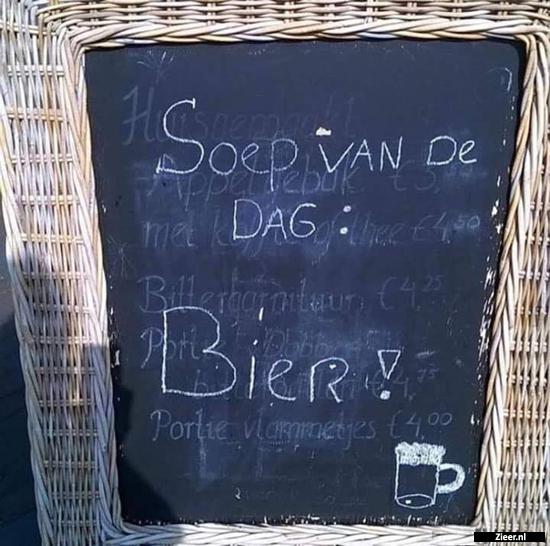 Huisgemaakt
Soep VAN De
Appelgebak €3,
DAG:
met koffie of thee €4,50
Bittergarnituur €4,25
Bier!
Portie
€4,75
Portie vlammetjes €4,00
Zieer.nl